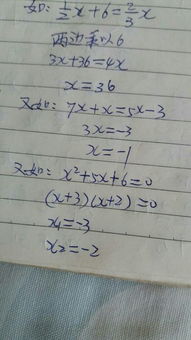 如: 1/2 x + 6 = 2/3 x
两边乘以6
3x+36=4x
x=36
又如: 7x+x=5x-3
3x=-3
x=-1
又如: x²+5x+6=0
(x+3)(x+2)=0
x₁=-3
x₂=-2